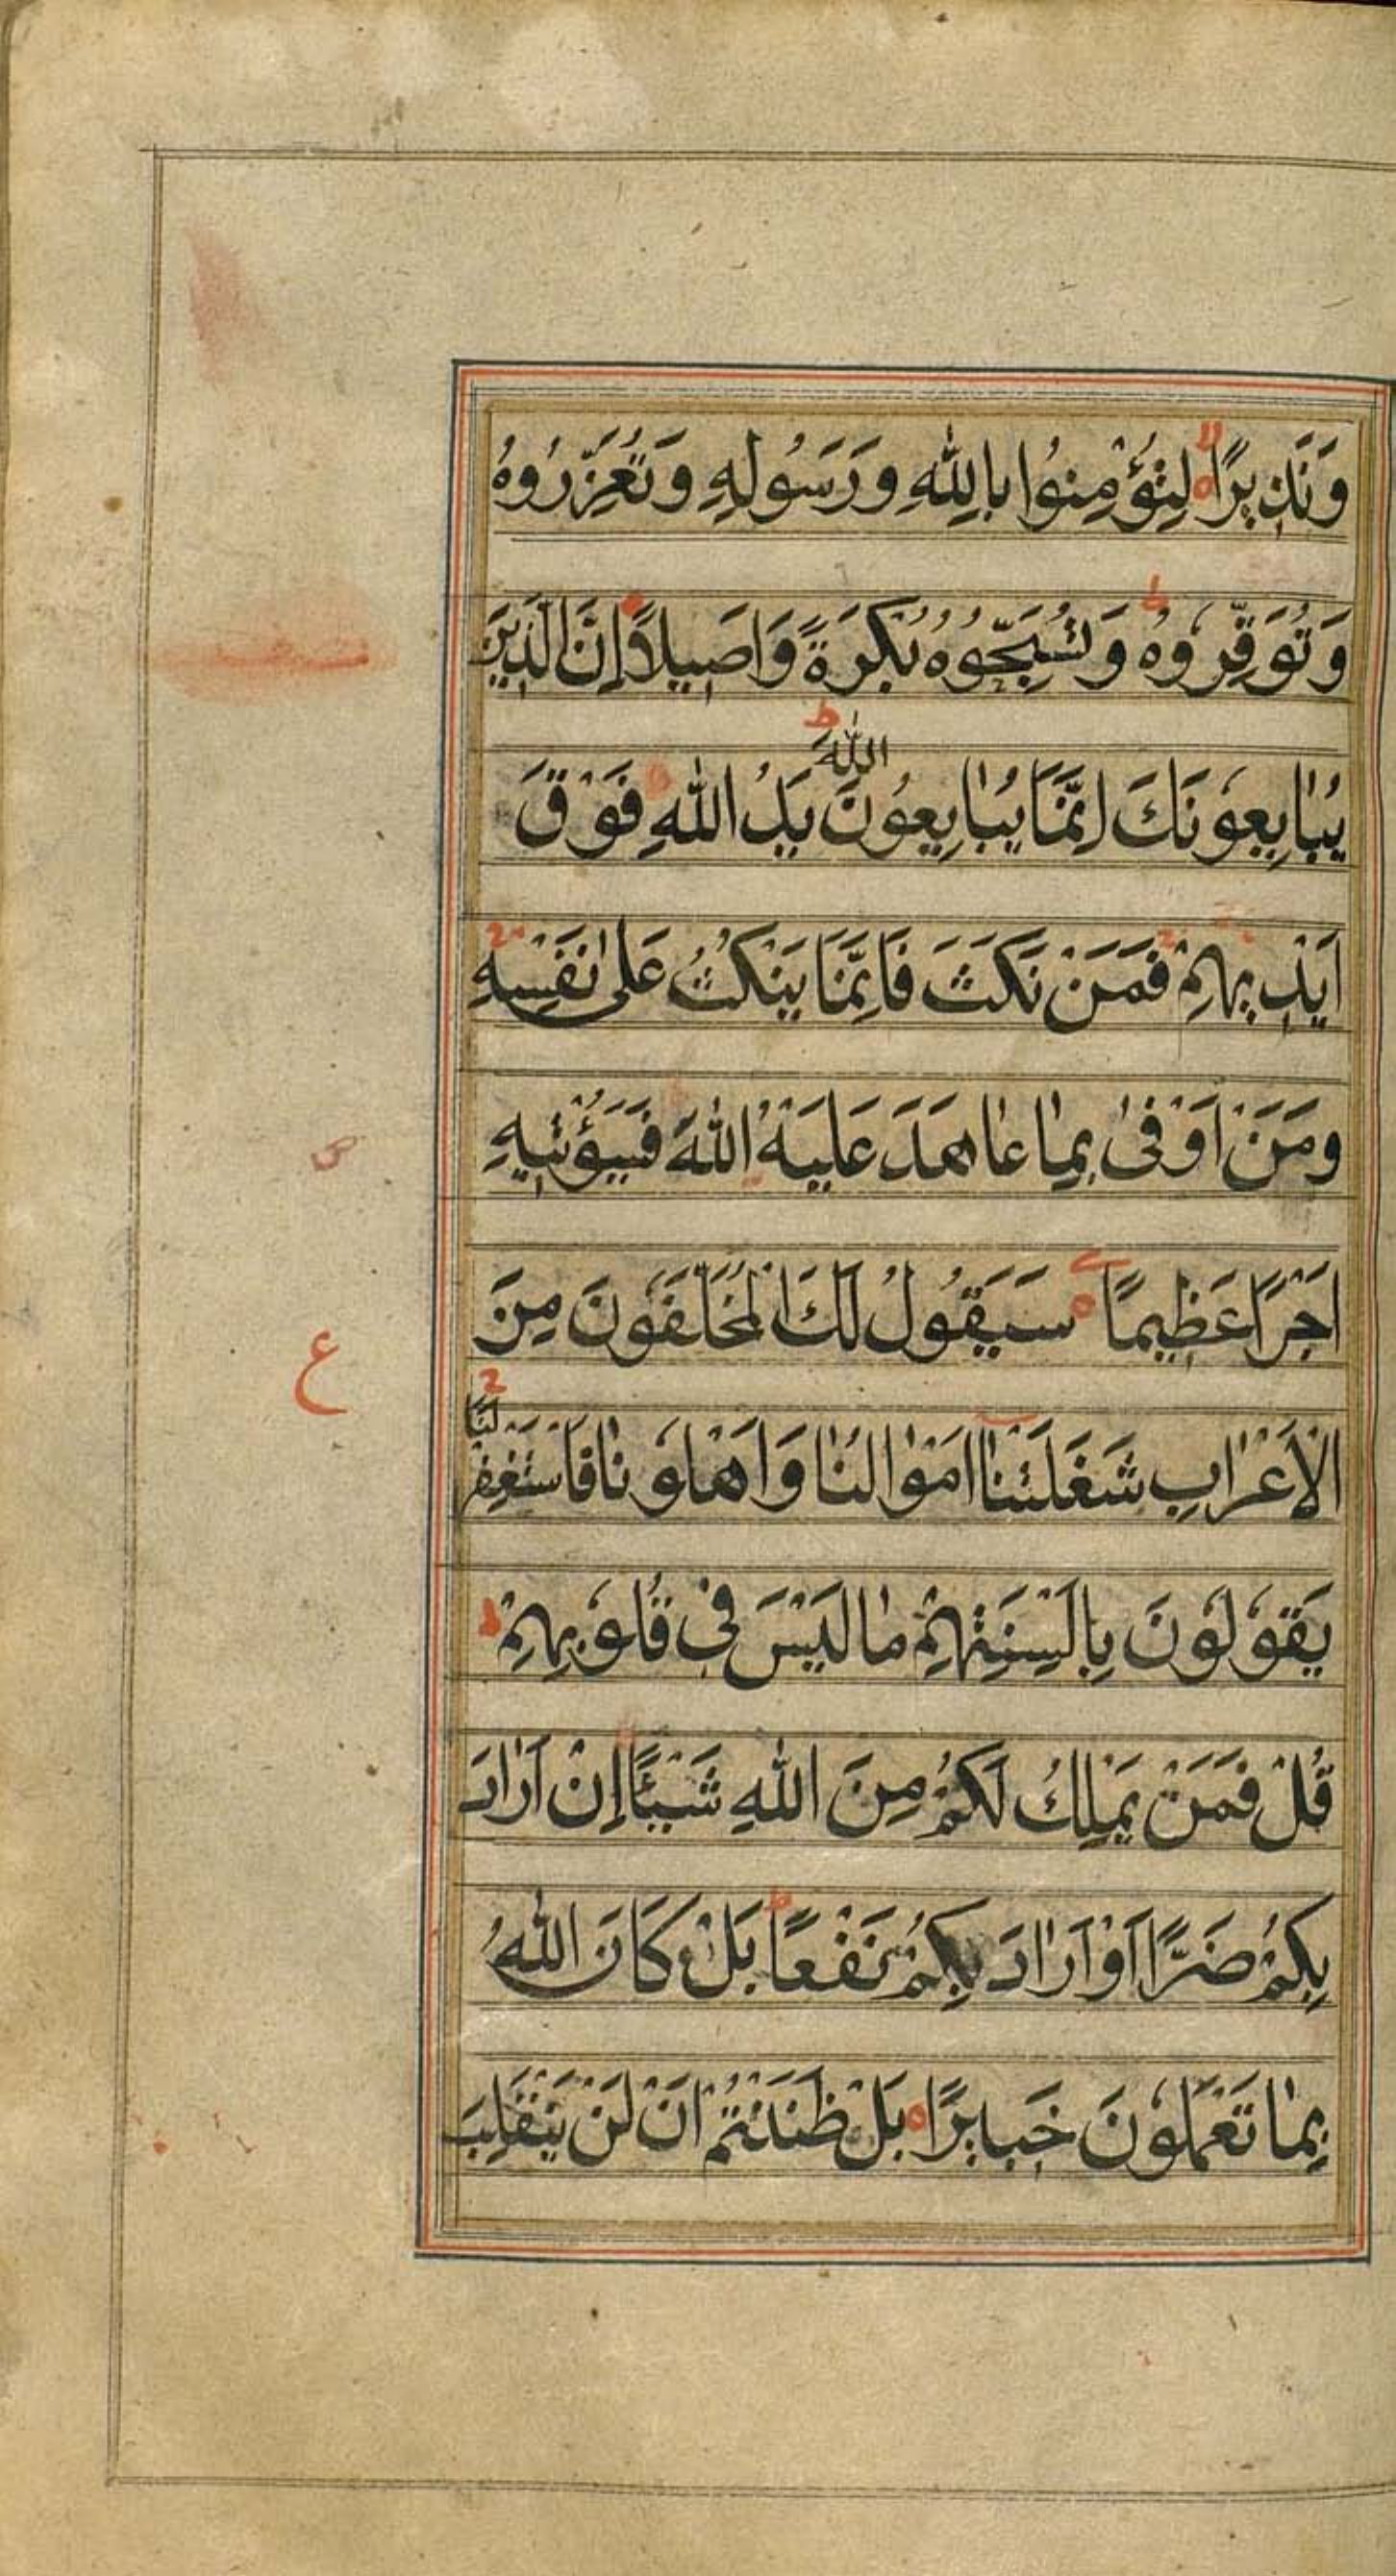 وَنَذِيرًا لِتُؤْمِنُوا بِاللّٰهِ وَرَسُولِهِ وَتُعَزِّرُوهُ
وَتُوَقِّرُوهُ وَتُسَبِّحُوهُ بُكْرَةً وَاَصِيلًا اِنَّ الَّذِينَ
يُبَايِعُونَكَ اِنَّمَا يُبَايِعُونَ اللّٰهَ يَدُ اللّٰهِ فَوْقَ
اَيْدِيهِمْ فَمَنْ نَكَثَ فَاِنَّمَا يَنْكُثُ عَلٰى نَفْسِهِ
وَمَنْ اَوْفٰى بِمَا عَاهَدَ عَلَيْهُ اللّٰهَ فَسَيُؤْتِيهِ
اَجْرًا عَظِيمًا سَيَقُولُ لَكَ الْمُخَلَّفُونَ مِنَ
الْاَعْرَابِ شَغَلَتْنَا اَمْوَالُنَا وَاَهْلُونَا فَاسْتَغْفِرْ لَنَا
يَقُولُونَ بِاَلْسِنَتِهِمْ مَا لَيْسَ فِى قُلُوبِهِمْ
قُلْ فَمَنْ يَمْلِكُ لَكُمْ مِنَ اللّٰهِ شَيْئًا اِنْ اَرَادَ
بِكُمْ ضَرًّا اَوْ اَرَادَ بِكُمْ نَفْعًا بَلْ كَانَ اللّٰهُ
بِمَا تَعْمَلُونَ خَبِيرًا بَلْ ظَنَنْتُمْ اَنْ لَنْ يَنْقَلِبَ
ع